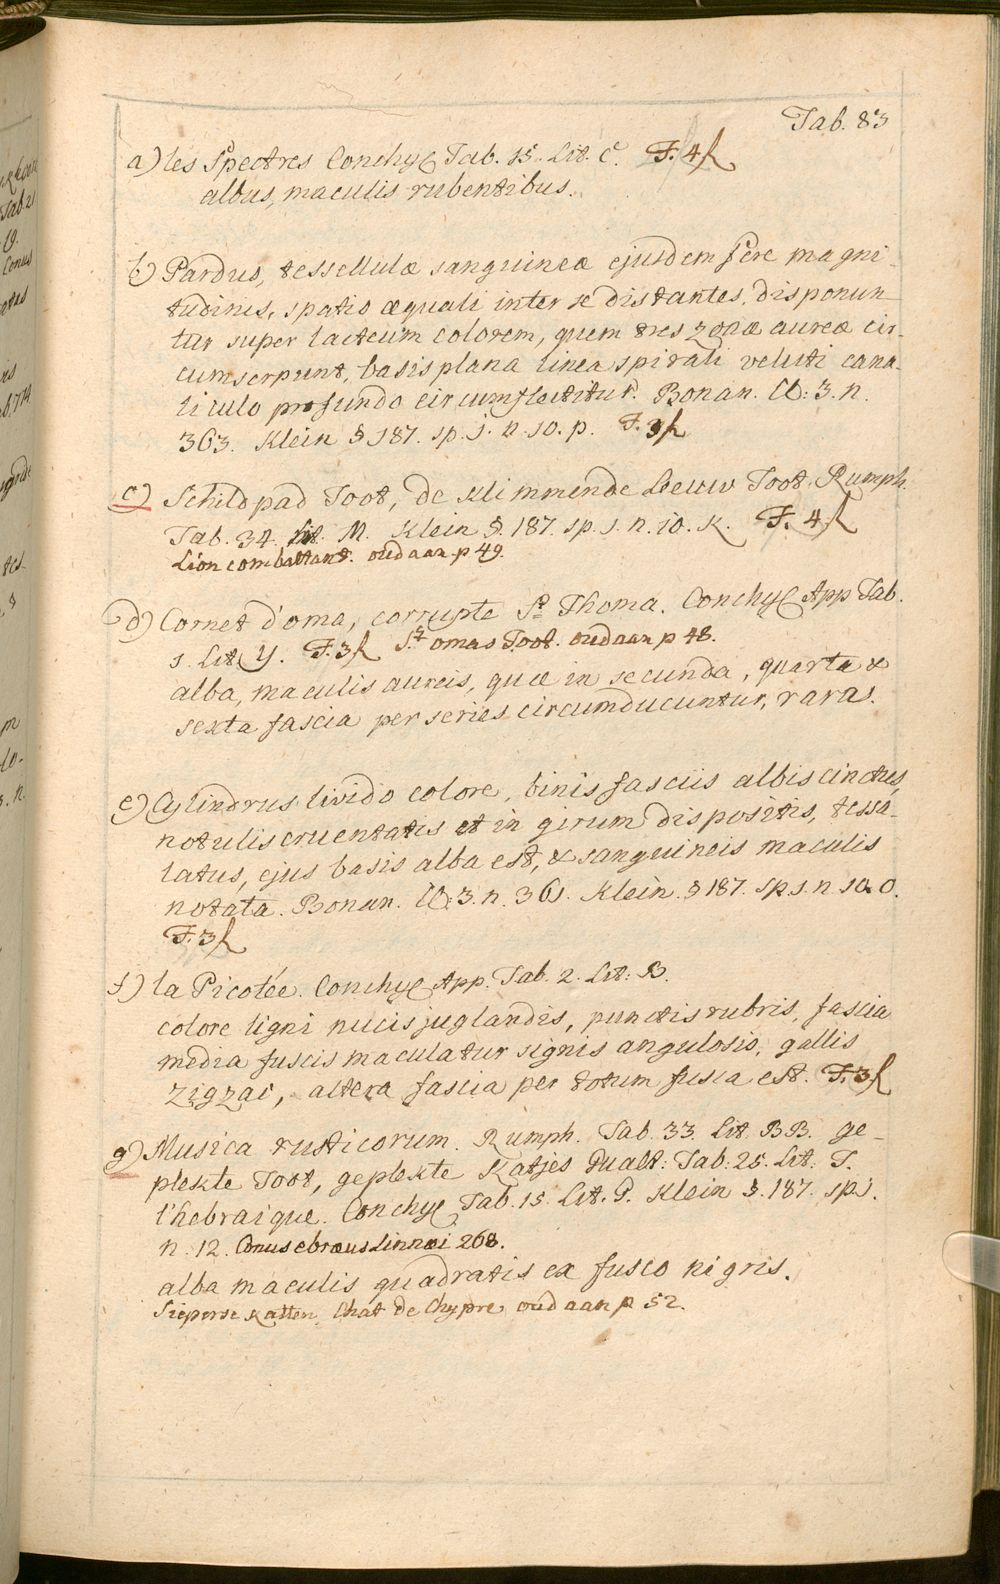 Tab. 83
a) les Spectres Conchyl Tab. 15. Lit. C. F. 4 h
albus, maculis rubentibus.
b) Pardus, tessellulæ sanguineæ ejusdem fere magni-
tudinis, spatio æquali inter se distantes, disponun-
tur super lacteum colorem, quem tres zonæ aureæ cir-
cumserpunt, basis plana linea spirali veluti cana-
liculo profundo circumflectitur. Bonan. Cl: 3. n.
363. Klein §. 187. sp. 1. n. 10. p. F. 3 h
c) Schildpad Toot, de klimmende Leeuw Toot. Rumph.
Tab. 34. Lit. M. Klein §. 187. sp. 1. n. 10. K. F. 4 h
Lion combattant. oudaan p 49.
d) Cornet d'oma, corrupte St. Thoma. Conchyl App Tab.
1. Lit Y. F. 3 h St omas Toot. oudaan p 48.
alba, maculis aureis, quæ in secunda, quarta &
sexta fascia per series circumducuntur, raras.
e) Cylindrus livido colore, binis fasciis albis cinctus,
notulis cruentatis et in girum dispositis, tessa-
latus, ejus basis alba est, & sanguineis maculis
notata. Bonan. Cl: 3. n. 361. Klein. § 187. sp. 1. n 10. o.
F. 3 h
f) la Picotée. Conchyl App. Tab. 2. Lit: B.
colore ligni nucis juglandis, punctis rubris, fascia
media fuscis maculatur signis angulosis, gallis
zigzac, altera fascia per totum fusca est. F. 3 h
g) Musica rusticorum. Rumph. Tab. 33. Lit. BB. ge-
plekte Toot, geplekte Katjes Gualt: Tab: 25. Lit: T.
l'hebraique. Conchyl Tab. 15. Lit. P. Klein §. 187. sp. 1.
n. 12. Conus ebræus Linnæi 268.
alba maculis quadratis ex fusco nigris.
Sieperse Katten, Chat de Chypre oudaan p 52.